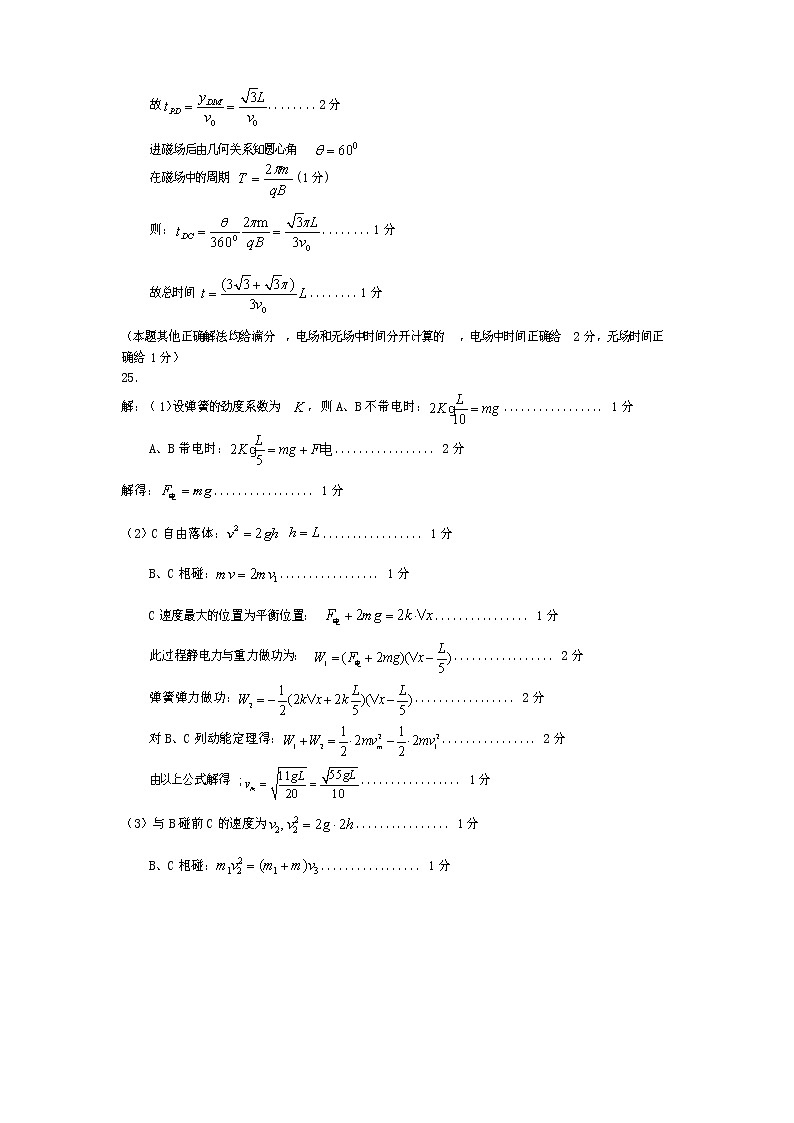 故 t_{PD} = \frac{y_{DM}}{v_0} = \frac{\sqrt{3}L}{v_0} ........2 分
进磁场后由几何关系知圆心角 θ = 60^0
在磁场中的周期 T = \frac{2πm}{qB} (1 分)
则: t_{DC} = \frac{θ}{360^0} \frac{2πm}{qB} = \frac{\sqrt{3}πL}{3v_0} ........1 分
故总时间 t = \frac{(3\sqrt{3} + \sqrt{3}π)}{3v_0} L ........1 分
(本题其他正确解法均给满分 ,电场和无场中时间分开计算的 ,电场中时间正确给 2 分,无场时间正
确给 1 分)
25.
解:(1)设弹簧的劲度系数为 K,则 A、B 不带电时: 2Kg\frac{L}{10} = mg ................. 1 分
A、B 带电时: 2Kg\frac{L}{5} = mg + F电 ................. 2 分
解得: F_电 = mg ................. 1 分
(2)C 自由落体: v^2 = 2gh h = L ................. 1 分
B、C 相碰: mv = 2mv_1 ................. 1 分
C 速度最大的位置为平衡位置: F_电 + 2mg = 2k·∨x ................ 1 分
此过程静电力与重力做功为: W_1 = (F_电 + 2mg)(∨x − \frac{L}{5}) ................. 2 分
弹簧弹力做功: W_2 = −\frac{1}{2}(2k∨x + 2k\frac{L}{5})(∨x − \frac{L}{5}) ................. 2 分
对 B、C 列动能定理得: W_1 + W_2 = \frac{1}{2}·2mv_m^2 − \frac{1}{2}·2mv_1^2 ................ 2 分
由以上公式解得 ; v_m = \sqrt{\frac{11gL}{20}} = \frac{\sqrt{55gL}}{10} ................. 1 分
(3)与 B 碰前 C 的速度为 v_2, v_2^2 = 2g·2h ................ 1 分
B、C 相碰: m_1v_2^2 = (m_1 + m)v_3 ................. 1 分